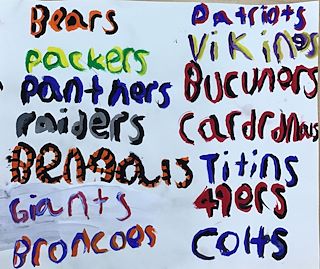 Bears
Packers
Pantners
raiders
Bengaus
Giants
Broncoes
Patriots
Vikines
Bucuners
Cardrdnaus
Titins
49ers
Colts